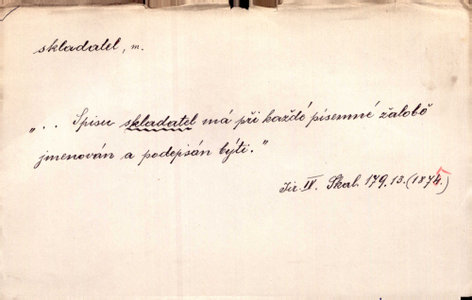 skladatel, m.
„.. Spisu skladatel má při každé písemné žalobě
jmenován a podepsán býti."
Jir. IV. Skal. 179.13. (1875.)